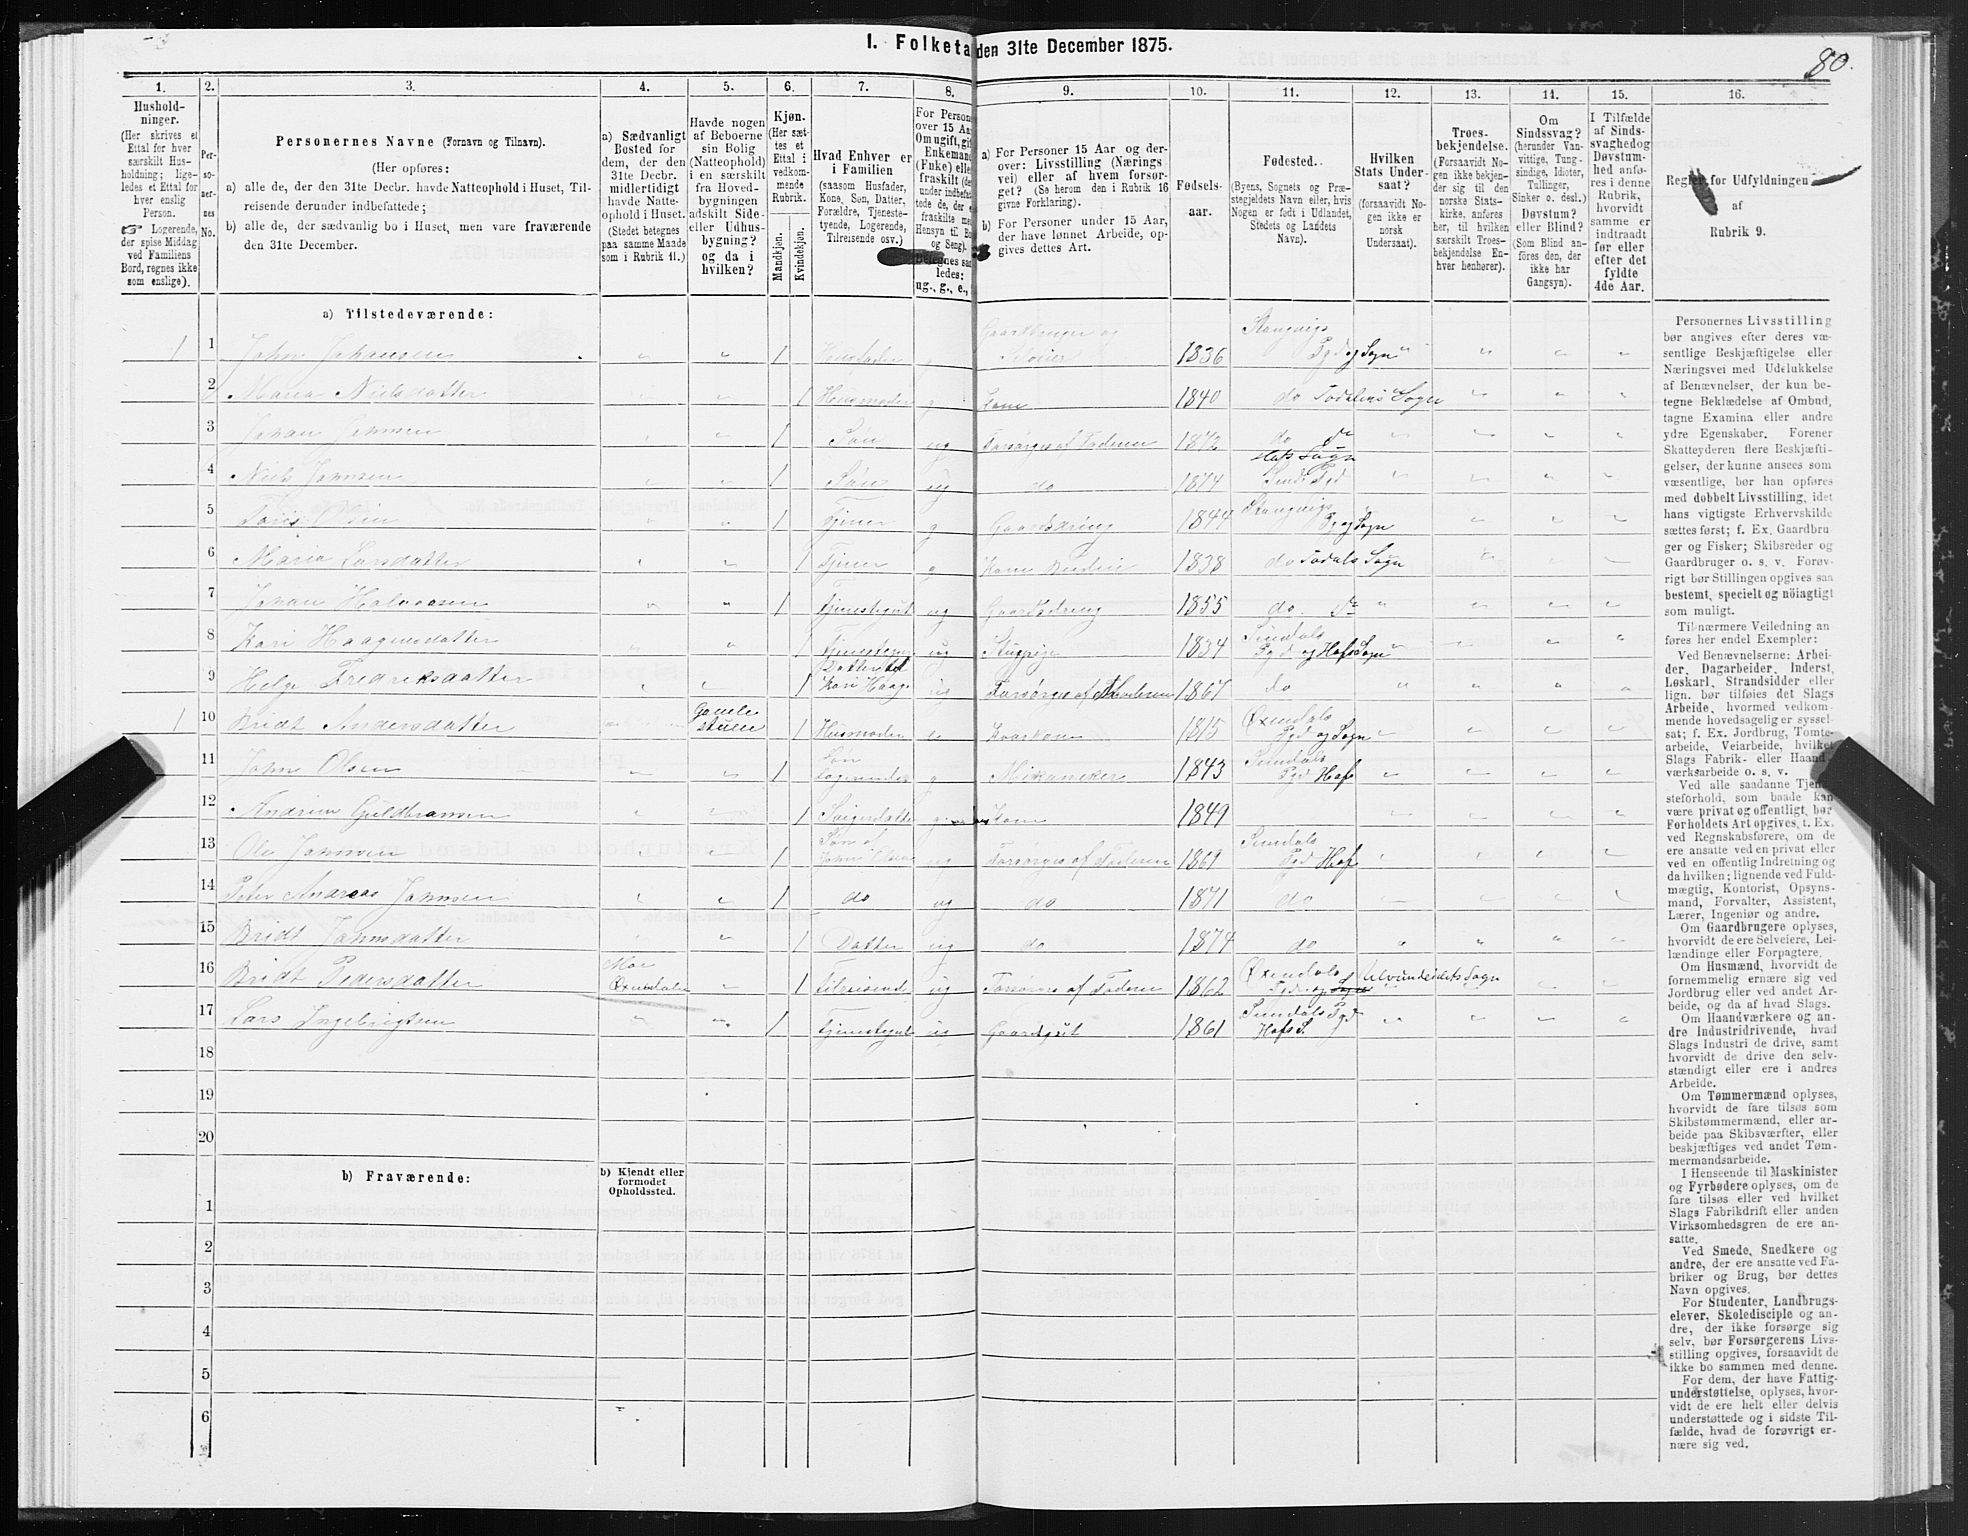 80.
1. Folketa den 31te December 1875.
1. 2. 3. 4. 5. 6. 7. 8. 9. 10. 11. 12. 13. 14. 15. 16.
Hushold-
ninger.
(Her skrives et
Ettal for hver
særskilt Hus-
holdning; lige-
ledes et Ettal for
hver enslig
Person.
☞ Logerende,
der spise Middag
ved Familiens
Bord, regnes ikke
som enslige).
Per-
so-
ner-
nes
No.
Personernes Navne (Fornavn og Tilnavn).
(Her opføres:
a) alle de, der den 31te Decbr. havde Natteophold i Huset, Til-
reisende derunder indbefattede;
b) alle de, der sædvanlig bo i Huset, men vare fraværende
den 31te December.
a) Sædvanligt
Bosted for
dem, der den
31te Decbr.
midlertidigt
havde Natte-
ophold i Huset.
(Stedet betegnes
paa samme Maade
som i Rubrik 11.)
Havde nogen
af Beboerne
sin Bolig
(Natteophold)
i en særskilt
fra Hoved-
bygningen
adskilt Side-
eller Udhus-
bygning?
og da i
hvilken?
Kjøn.
(Her sæt-
tes et
Ettal i
vedkom-
mende
Rubrik.
Mandkjøn.
Kvindekjøn.
Hvad Enhver er
i Familien
(saasom Husfader,
Kone, Søn, Datter,
Forældre, Tjeneste-
tyende, Logerende,
Tilreisende osv.)
For Person
over 15 Aa
Om ugift, gif
Enkemand
(Enke) elle
fraskilt (de
under indbefat-
tede de, der e
fraskilte me
Hensyn til Bo
og Seng).
Betegnes saa
ledes:
ug., g., e.,
a) For Personer 15 Aar og der-
over: Livsstilling (Nærings
vei) eller af hvem forsør-
get? (Se herom den i Rubrik 16
givne Forklaring).
b) For Personer under 15 Aar,
der have lønnet Arbeide, op-
gives dettes Art.
Fødsels-
aar.
Fødested.
(Byens, Sognets og Præ-
stegjeldets Navn eller, hvis
Nogen er født i Udlandet,
Stedets og Landets
Navn).
Hvilken
Stats Under-
saat?
(forsaavidt No-
gen ikke er
norsk
Undersaat).
Troes-
bekjendelse.
(Forsaavidt No-
gen ikke bekjen-
der sig til den
norske Stats-
kirke, anføres
her, til hvilken
særskilt Troes-
bekjendelse En-
hver henhører).
Om
Sindssvag?
(herunder Van-
vittige, Tung-
sindige, Idioter,
Tullinger,
Sinker o. desl.)
Døvstum?
eller Blind?
(Som Blind an-
føres den, der
ikke har
Gangsyn).
I Tilfælde
af Sinds-
svaghed og
Døvstum-
hed anfø-
res i denne
Rubrik,
hvorvidt
samme er
indtraadt
før eller
efter det
fyldte
4de Aar.
Regler for Udfyldningen
af
Rubrik 9.
a) Tilstedeværende:
1 1 John Johansen 1 Husfader g Gaardbruger og 1836 Stangvigs Pgd og Sogn
2 Maria Nielsdatter 1 Husmoder g Kone 1840 do Todalens Sogn
3 Johan Johnsen 1 Søn ug Forsørges af Faderen 1872 do do
4 Niels Johnsen 1 Søn ug do 1874 Hofs Sogn Sund. Pgd
5 1 Tjener g Gaardsdreng 1844 Stangvigs Pg og Sogn
6 Maria Larsdatter 1 Tjener g Kone 1838 do Todals Sogn
7 Johan Halvorsen 1 Tjenestegut ug Gaardsdreng 1855 do do
8 Kari Haagensdatter 1 ug 1834 Sundals Pgd og Hofs Sogn
9 Helge Fredriksdatter 1 Datter til Kari Haag. ug Forsørges af Moderen 1867 do
1 10 Bridt Andersdatter Gamle stuen 1 Husmoder e Kaarkone 1815 Øxendals Pgd og Sogn
11 John Olsen 1 Søn Logerende g Mekaniker 1843 Sundals Pgd Hof
12 Guldbransen 1 Svigerdatter g Kone 1849
13 Ole Johnsen 1 Søn af John Olsen ug Forsørges af Faderen 1869 Sundals Pgd Hof
14 Peter Andreas Johnsen 1 do ug do 1871 do
15 Bridt Johnsdatter 1 Datter ug do 1874 do
16 Bridt Pedersdatter Moe Øxendalen 1 Tilreisende ug Forsørges af Faderen 1862 Øxendals Pgd og Sogn Ulvundeidets Sogn
17 Lars Ingebrigtsen 1 Tjenestegut ug Gaardsgut 1861 Sundals Pgd Hofs S.
18
19
20
b) Fraværende:
b) Kjendt eller
formodet
Opholdssted.
1
2
3
4
5
6
Personernes Livsstilling
bør angives efter deres væ-
sentlige Beskjæftigelse eller
Næringsvei med Udelukkelse
af Benævnelser, der kun be-
tegne Beklædelse af Ombud,
tagne Examina eller andre
ydre Egenskaber. Forener
Skatteyderen flere Beskjæfti-
gelser, der kunne ansees som
væsentlige, bør han opføres
med dobbelt Livsstilling, idet
hans vigtigste Erhvervskilde
sættes først; f. Ex. Gaardbru
ger og Fisker; Skibsreder og
Gaardbruger o. s. v. Forøv-
rigt bør Stillingen opgives saa
bestemt, specielt og nöiagtigt
som muligt.
Til nærmere Veiledning an
føres her endel Exempler:
Ved Benævnelserne: Arbei-
der, Dagarbeider, Inderst,
Løskarl, Strandsidder eller
lign. bør tilføies det Slags
Arbeide, hvormed vedkom-
mende hovedsagelig er syssel-
sat; f. Ex. Jordbrug, Tomte-
arbeide, Veiarbeide, hvilket
Slags Fabrik- eller Haand-
værksarbeide o. s. v.
Ved alle saadanne Tjene-
steforhold, som baade kan
være privat og offentligt, bør
Forholdets Art opgives, t. Ex.
ved Regnskabsførere, om de
ere ansatte ved en privat eller
ved en offentlig Indretning og
da hvilken; lignende ved Fuld-
mægtig, Kontorist, Opsyns-
mand, Forvalter, Assistent,
Lærer, Ingeniør og andre.
Om Gaardbrugere oplyses,
hvorvidt de ere Selveiere, Lei-
lændinge eller Forpagtere.
Om Husmænd, hvorvidt de
fornemmelig ernære sig ved
Jordbrug eller ved andet Ar-
beide, og da af hvad Slags.
Om Haandværkere og an-
dre Industridrivende, hvad
Slags Industri de drive, samt
hvorvidt de drive den selv-
stændigt eller ere i andres
Arbeide.
Om Tømmermænd oplyses,
hvorvidt de fare tilsøs som
Skibstømmermænd, eller ar-
beide paa Skibsværfter, eller
beskjæftiges ved andet Tøm-
mermandsarbeide.
I Henseende til Maskinister
og Fyrbødere oplyses, om de
fare tilsøs eller ved hvilket
Slags Fabrikdrift eller anden
Virksomhedsgren de ere an-
satte.
Ved Smede, Snedkere og
andre, der ere ansatte ved Fa-
briker og Brug, bør dettes
Navn opgives.
For Studenter, Landbrugs-
elever, Skoledisciple og an-
dre, der ikke forsørge sig
selv, bør Forsørgerens Livs-
stilling opgives, forsaavidt de
ikke bo sammen med denne.
For dem, der have Fattig-
understøttelse, oplyses, hvor-
vidt de ere helt eller delvis
understøttede og i sidste Til-
fælde, hvad de forøvrigt er-
nære sig ved.